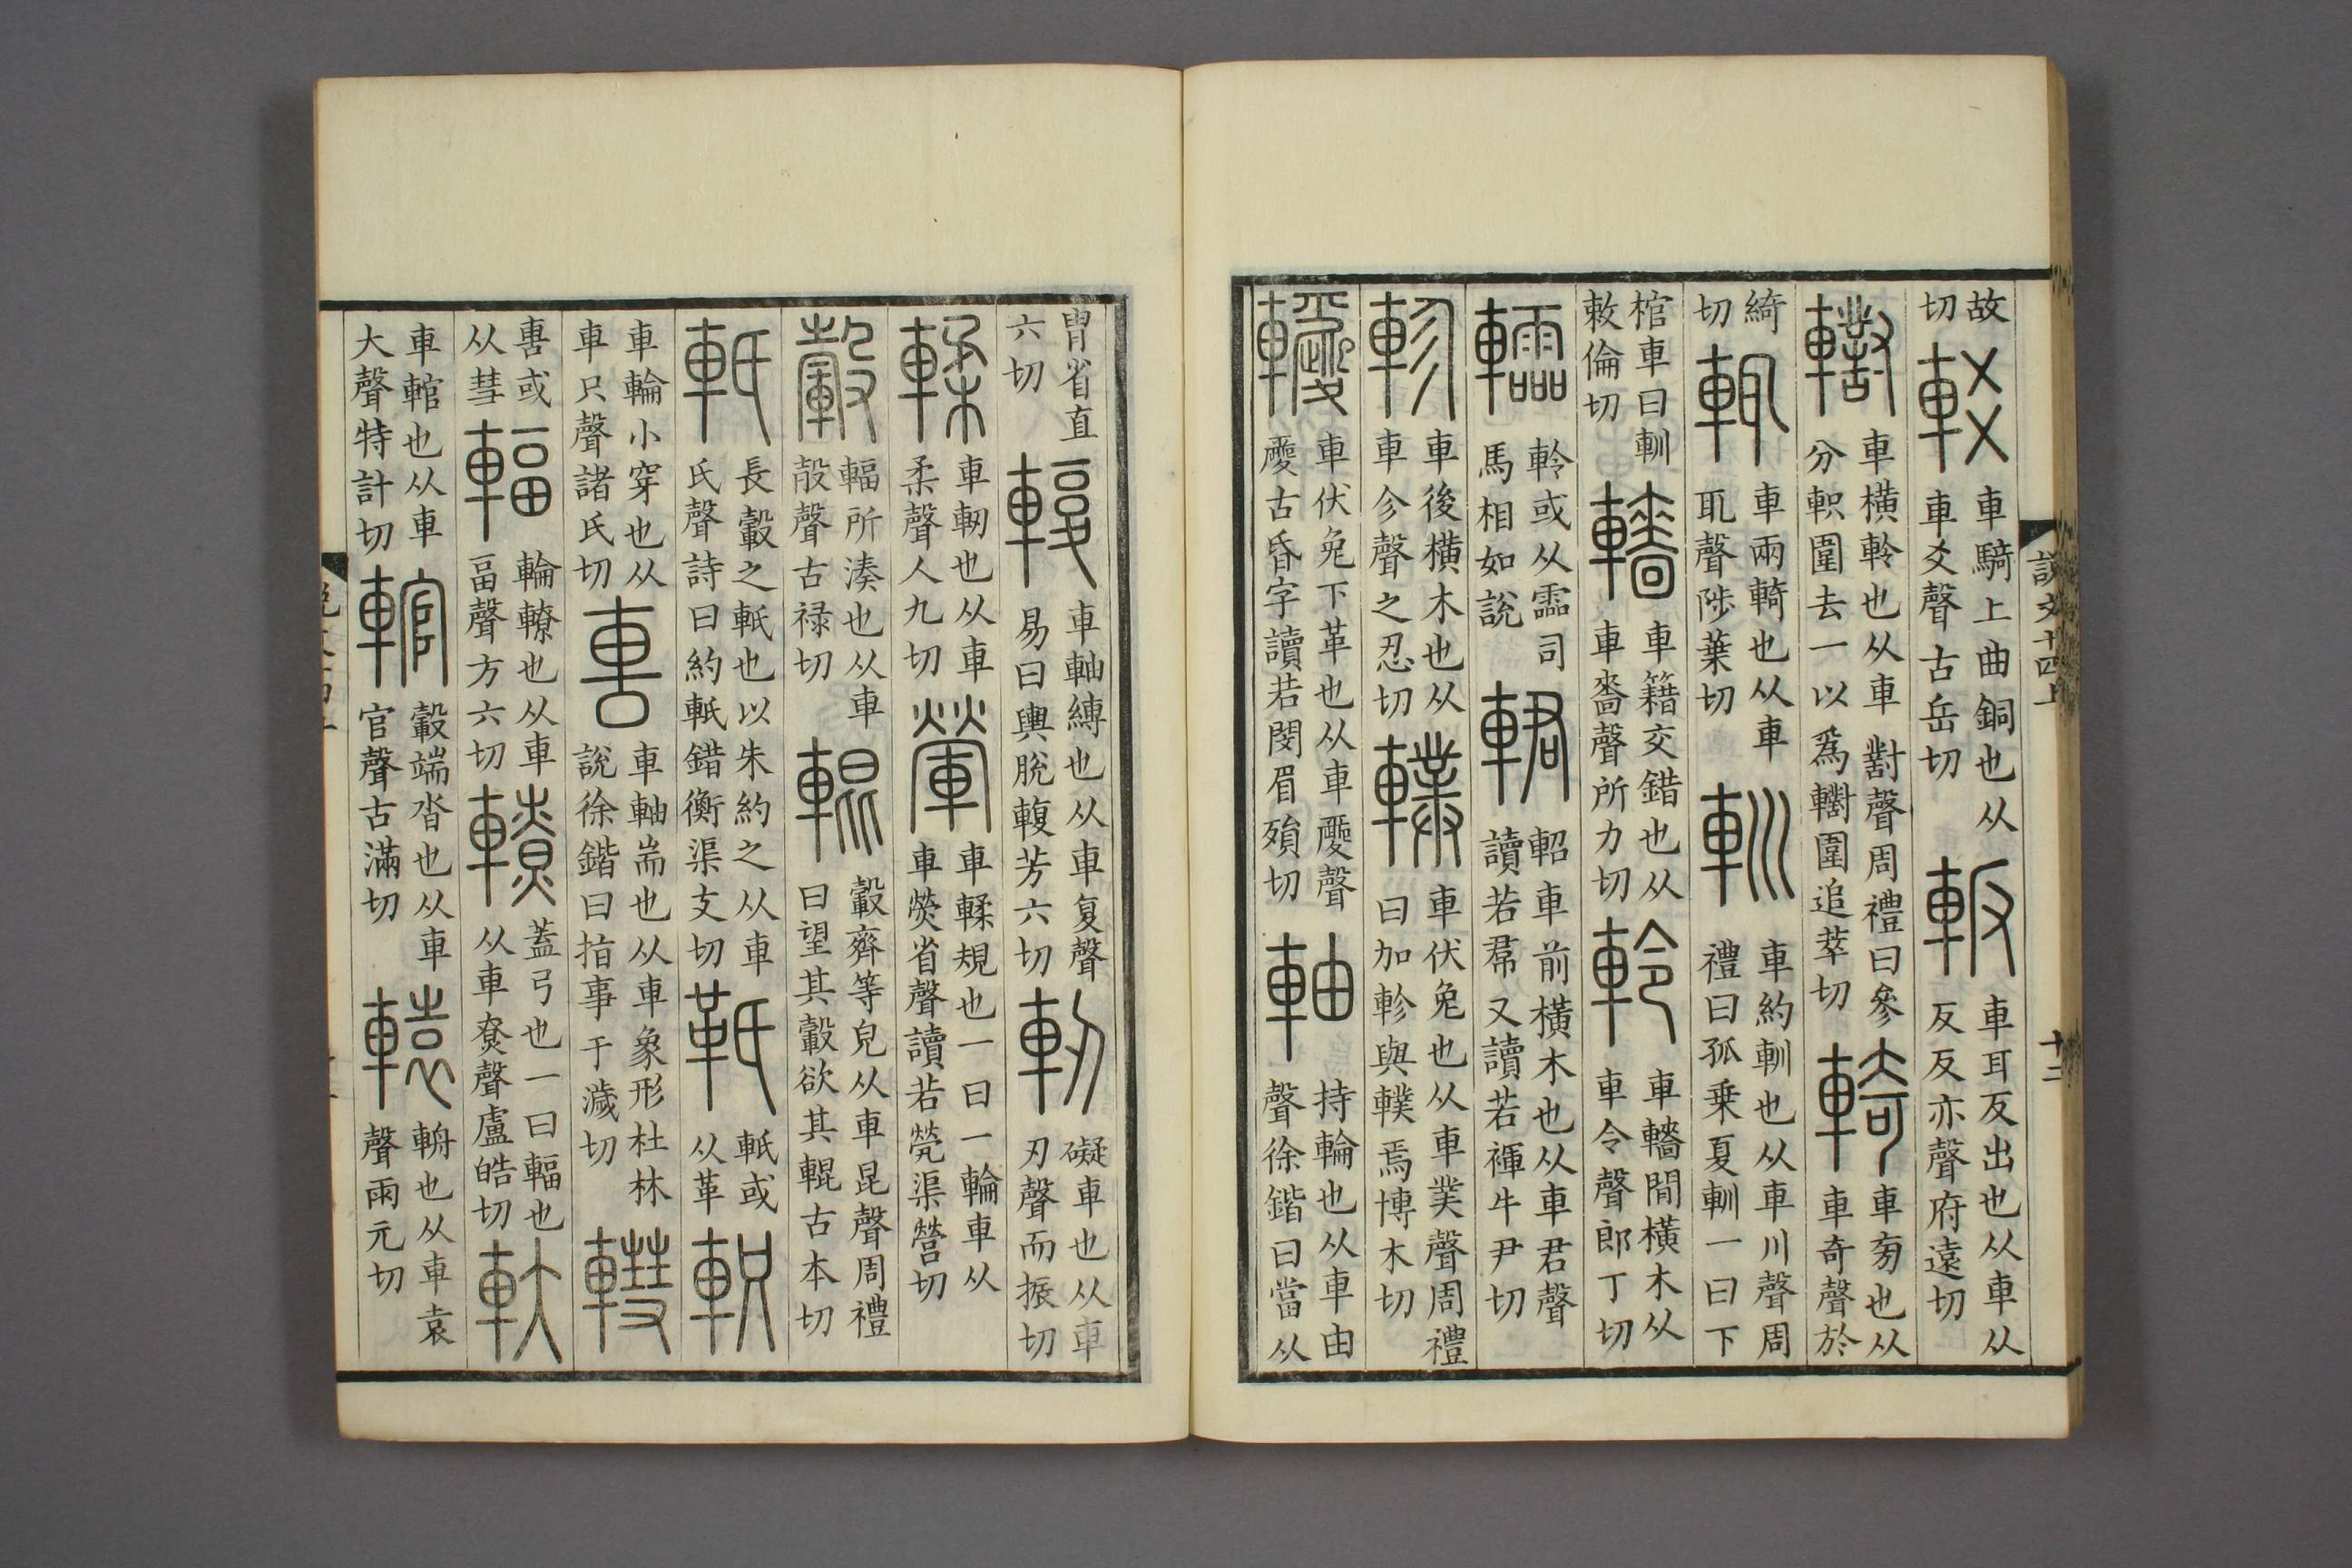 說文十四上 十二
故切 較 車騎上曲銅也从車爻聲古岳切 𨊻 車耳反出也从車从反反亦聲府遠切
轛 車橫軨也从車對聲周禮曰參分軹圍去一以爲轛圍追萃切 輢 車旁也从車奇聲於
綺切 輒 車兩輢也从車耴聲陟葉切 𨊠 車約𨊠也从車川聲周禮曰孤乘夏𨊠一曰下
棺車曰𨊠敕倫切 轖 車籍交錯也从車嗇聲所力切 軨 車轖閒橫木从車令聲郎丁切
䡼 軨或从霝司馬相如說 輑 軺車前橫木也从車君聲讀若帬又讀若褌牛尹切
軫 車後橫木也从車㐱聲之忍切 轐 車伏兔也从車菐聲周禮曰加軫與轐焉博木切
車伏兔下革也从車聲古昏字讀若閔眉殞切 軸 持輪也从車由聲徐鍇曰當从
冑省直六切 輹 車軸縛也从車复聲易曰輿脫輹芳六切 軔 礙車也从車刃聲而振切
輮 車軔也从車柔聲人九切 車輮規也一曰一輪車从車熒省聲讀若煢渠營切
轂 輻所湊也从車㱿聲古祿切 輥 轂齊等皃从車昆聲周禮曰望其轂欲其輥古本切
軝 長轂之軝也以朱約之从車氏聲詩曰約軝錯衡渠支切 𩉬 軝或从革 軹
車輪小穿也从車只聲諸氏切 軎 車軸耑也从車象形杜林說徐鍇曰指事于濊切 轊
軎或从彗 輻 輪轑也从車畐聲方六切 轑 蓋弓也一曰輻也从車尞聲盧皓切 軑
車輨也从車大聲特計切 輨 轂端沓也从車官聲古滿切 轅 輈也从車袁聲雨元切